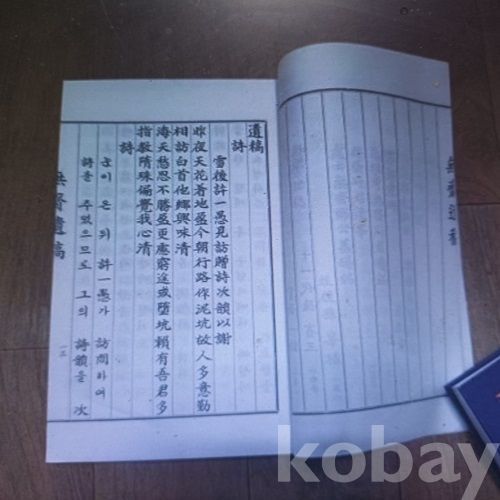 遺稿
詩
雪後許一愚見訪贈詩次韻以謝
昨夜天花著地盈今朝行路作泥坑故人多意勤
相訪白首他鄉興味清
海天愁思不勝盈更慮窮途或墮坑賴有吾君多
指敎隋珠偏覺我心清
詩
눈이 온 뒤 許一愚가 訪問하여
詩를 주었으므로 그의 詩韻을 次
遺稿
一三
kobay